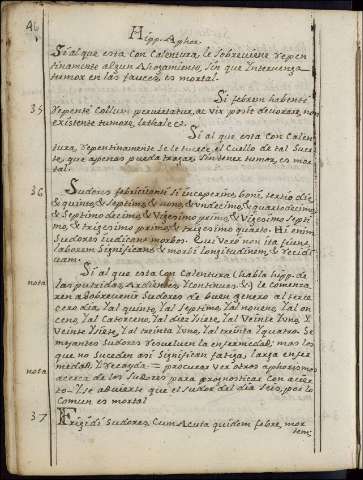 46
Hipp. Aphor.
Si al que esta con Calentura, le sobreviene repen
tinamente algun Ahogamiento, sin que Intervenga
tumor en las fauces, es mortal.
Si febrem habenti
35 repente Collum pervertatur, ac vix posit devorare, non
existente tumore, lethale est.
Si al que esta con Calen
tura, repentinamente se le tuerce el Cuello de tal suer
te, que apenas pueda tragar, sin tener tumor, es mor
tal.
36 Sudores febricitanti si inceperint, boni, tertio die
& quinto, & septimo, & nono, & undecimo, & quartodecimo,
& septimo decimo, & vigesimo primo, & vigesimo septi
mo, & trigesimo primo, & trigesimo quarto. Hi enim
sudores iudicant morbos. Qui vero non ita fiunt,
laborem significant, & morbi longitudinem, & recidi
vam.
Si al que esta con Calentura (habla hipp. de
nota las putridas, Ardientes, y Continuas &) le comenza
ren a sobrevenir sudores de buen genero al terce
ro dia, al quinto, al septimo, al noveno, al on
ceno, al Catorceno, al diez y siete, al veinte y uno, al
veinte y siete, al treinta y uno, al treinta y quatro. Se
mejantes sudores resuelven la enfermedad; mas los
que no suceden asi significan fatiga, larga enfer
nota medad, y recayda = procurar ver otros aphorismos
acerca de los sudores para pronosticar con acier
to = y se advierte que el sudor del dia seis, por lo
Comun es mortal
37 Frigidi sudores, Cum Acuta quidem febre, mor
tem;